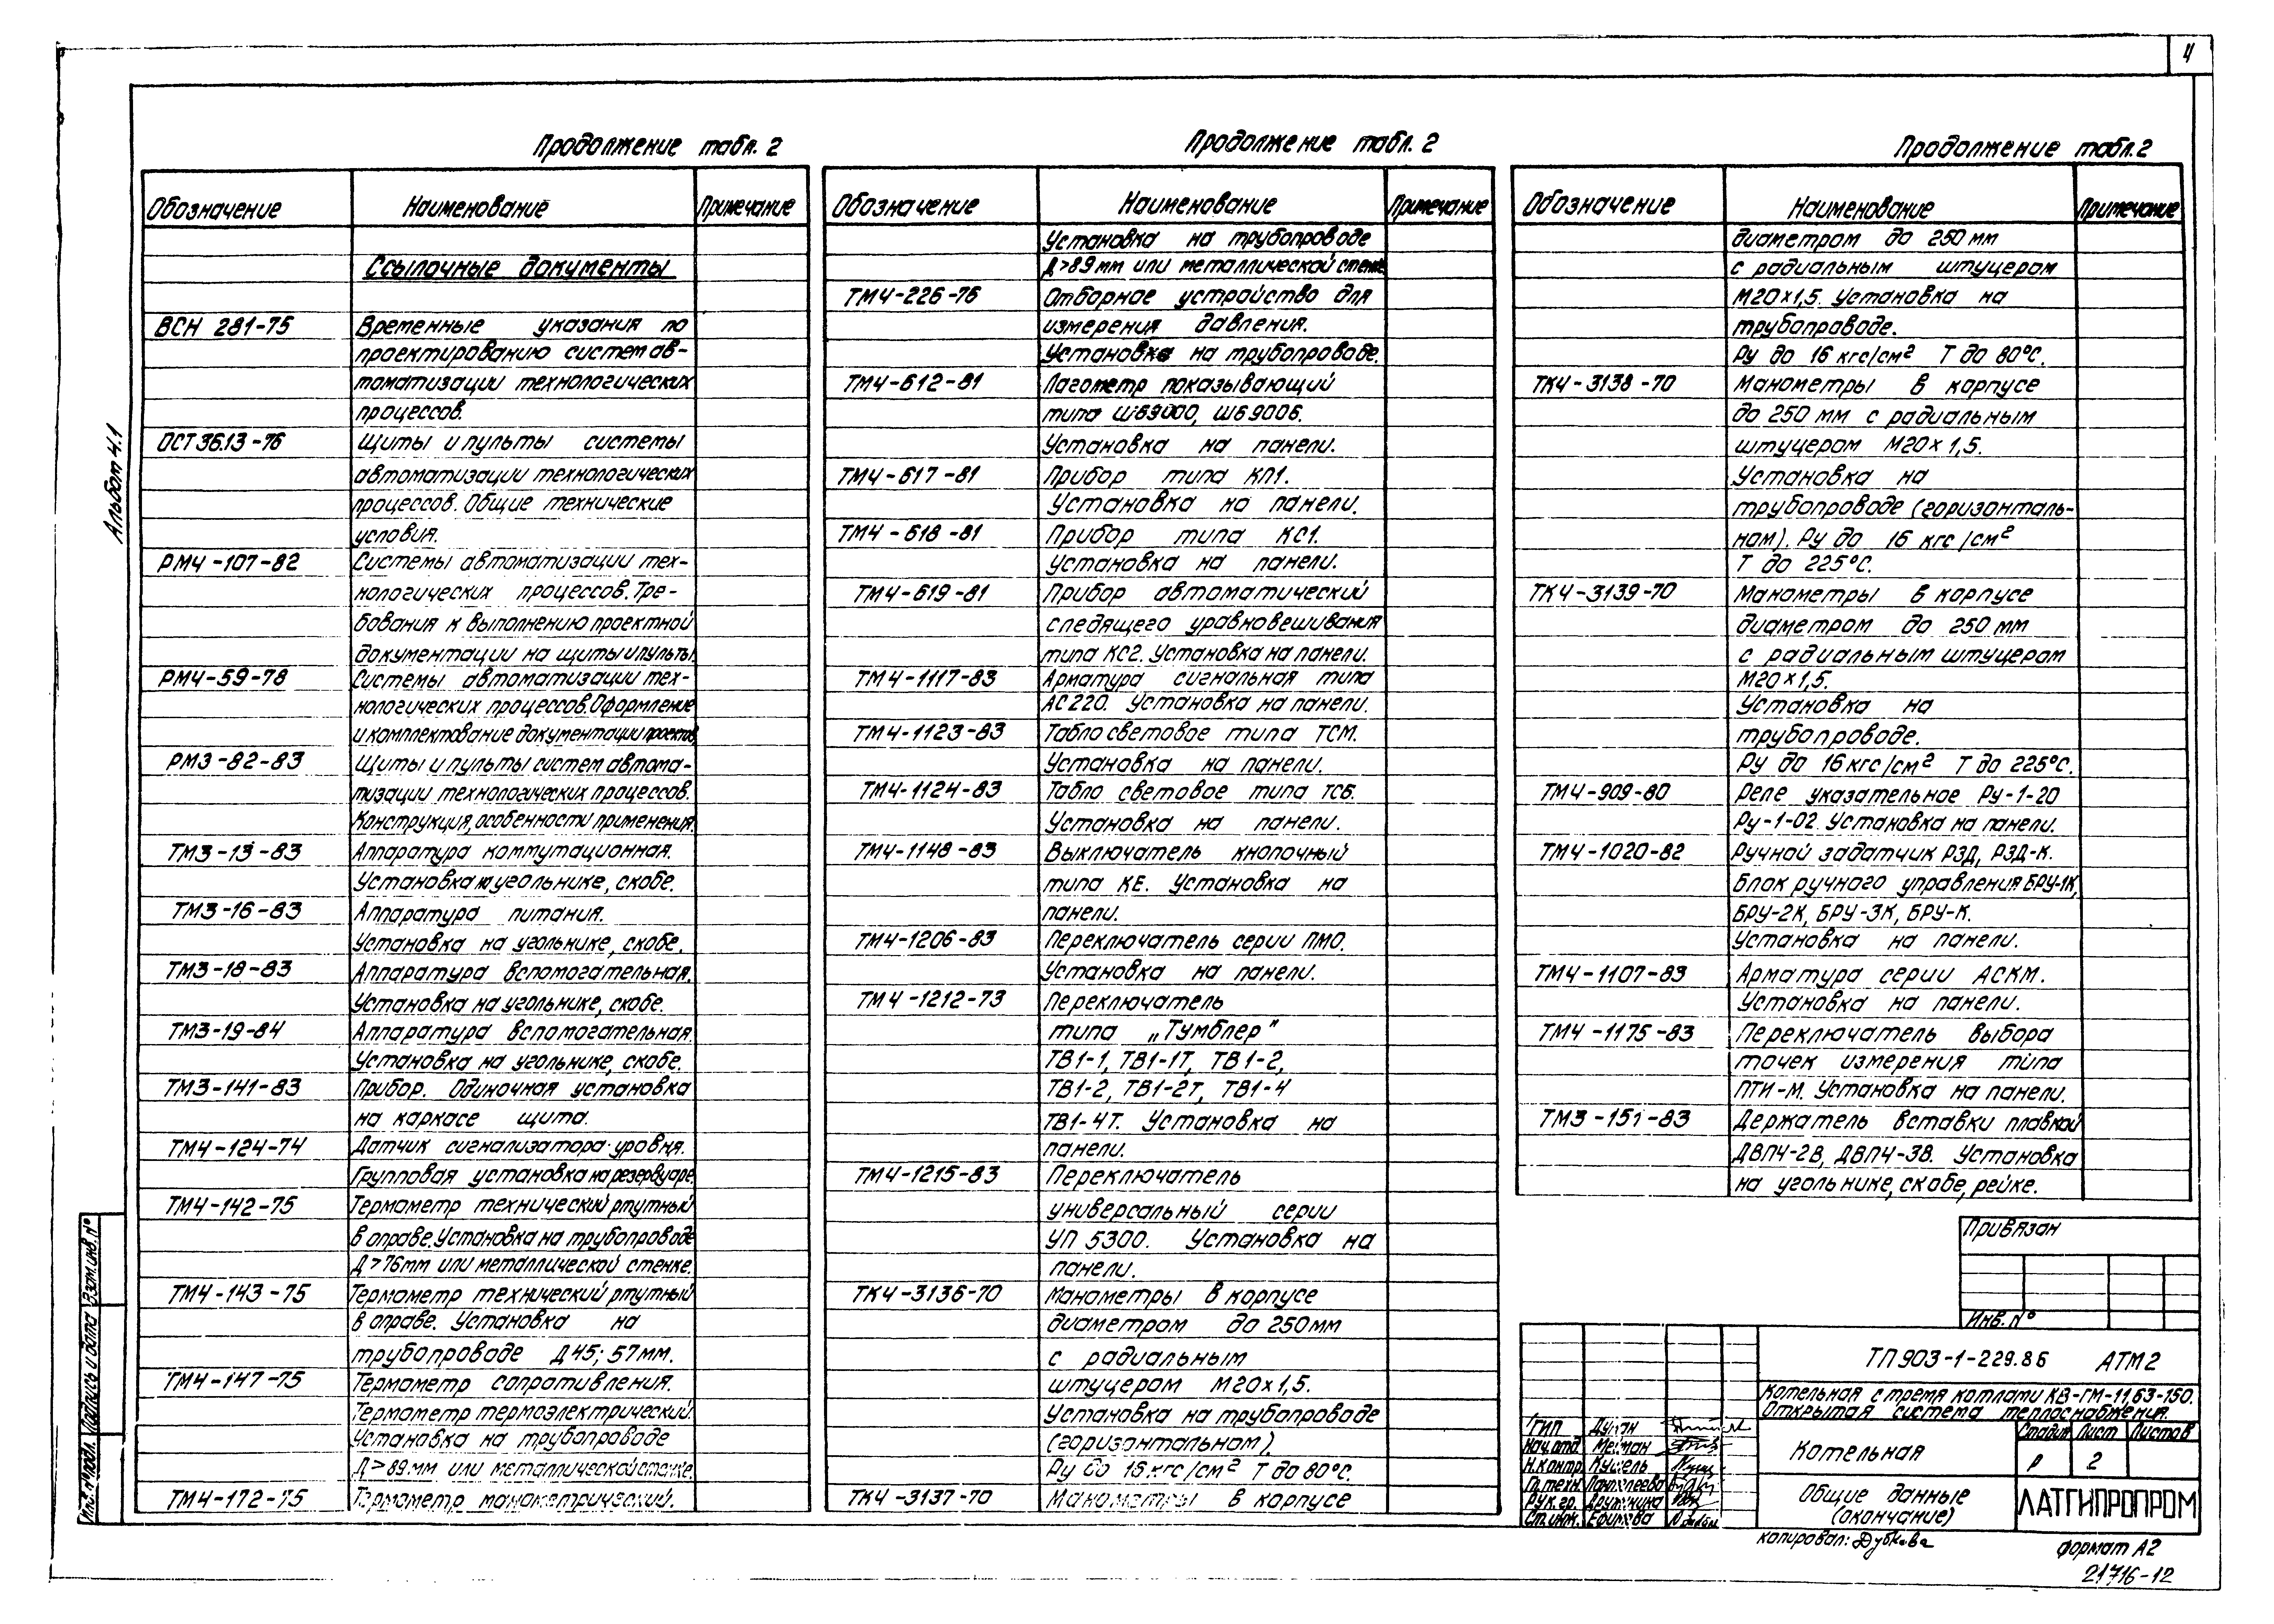 4
Альбом 4.1
Продолжение табл. 2
Обозначение Наименование Примечание
Ссылочные документы
ВСН 281-75 Временные указания по
проектированию систем ав-
томатизации технологических
процессов.
ОСТ 36.13-76 Щиты и пульты системы
автоматизации технологических
процессов. Общие технические
условия.
РМ4-107-82 Системы автоматизации тех-
нологических процессов. Тре-
бования к выполнению проектной
документации на щиты и пульты.
РМ4-59-78 Системы автоматизации тех-
нологических процессов. Оформление
и комплектование документации проектов.
РМ3-82-83 Щиты и пульты систем автома-
тизации технологических процессов.
Конструкция, особенности применения.
ТМ3-13-83 Аппаратура коммутационная.
Установка на угольнике, скобе.
ТМ3-16-83 Аппаратура питания.
Установка на угольнике, скобе.
ТМ3-18-83 Аппаратура вспомогательная.
Установка на угольнике, скобе.
ТМ3-19-84 Аппаратура вспомогательная.
Установка на угольнике, скобе.
ТМ3-141-83 Прибор. Одиночная установка
на каркасе щита.
ТМ4-124-74 Датчик сигнализатора уровня.
Групповая установка на резервуаре.
ТМ4-142-75 Термометр технический ртутный
в оправе. Установка на трубопроводе
Д>76мм или металлической стенке.
ТМ4-143-75 Термометр технический ртутный
в оправе. Установка на
трубопроводе Д45; 57мм.
ТМ4-147-75 Термометр сопротивления.
Термометр термоэлектрический.
Установка на трубопроводе
Д>89мм или металлической стенке.
ТМ4-172-75 Термометр манометрический.
Продолжение табл. 2
Обозначение Наименование Примечание
Установка на трубопроводе
Д>89мм или металлической стенке
ТМ4-226-76 Отборное устройство для
измерения давления.
Установка на трубопроводе.
ТМ4-612-81 Логометр показывающий
типа Ш69000, Ш69006.
Установка на панели.
ТМ4-617-81 Прибор типа КП1.
Установка на панели.
ТМ4-618-81 Прибор типа КС1.
Установка на панели.
ТМ4-619-81 Прибор автоматический
следящего уравновешивания
типа КС2. Установка на панели.
ТМ4-1117-83 Арматура сигнальная типа
АС220. Установка на панели.
ТМ4-1123-83 Табло световое типа ТСМ.
Установка на панели.
ТМ4-1124-83 Табло световое типа ТСБ.
Установка на панели.
ТМ4-1148-83 Выключатель кнопочный
типа КЕ. Установка на
панели.
ТМ4-1206-83 Переключатель серии ПМО.
Установка на панели.
ТМ4-1212-73 Переключатель
типа „Тумблер"
ТВ1-1, ТВ1-1Т, ТВ1-2,
ТВ1-2, ТВ1-2Т, ТВ1-4
ТВ1-4Т. Установка на
панели.
ТМ4-1215-83 Переключатель
универсальный серии
УП 5300. Установка на
панели.
ТК4-3136-70 Манометры в корпусе
диаметром до 250мм
с радиальным
штуцером М20х1,5.
Установка на трубопроводе
(горизонтальном).
Ру до 16 кгс/см² Т до 80°С.
ТК4-3137-70 Манометры в корпусе
Продолжение табл. 2
Обозначение Наименование Примечание
диаметром до 250 мм
с радиальным штуцером
М20х1,5. Установка на
трубопроводе.
Ру до 16 кгс/см² Т до 80°С.
ТК4-3138-70 Манометры в корпусе
до 250 мм с радиальным
штуцером М20х1,5.
Установка на
трубопроводе (горизонталь-
ном). Ру до 16 кгс/см²
Т до 225°С.
ТК4-3139-70 Манометры в корпусе
диаметром до 250 мм
с радиальным штуцером
М20х1,5.
Установка на
трубопроводе.
Ру до 16кгс/см² Т до 225°С.
ТМ4-909-80 Реле указательное Ру-1-20
Ру-1-02. Установка на панели.
ТМ4-1020-82 Ручной задатчик РЗД, РЗД-К.
Блок ручного управления БРУ-1К,
БРУ-2К, БРУ-3К, БРУ-К.
Установка на панели.
ТМ4-1107-83 Арматура серии АСКМ.
Установка на панели.
ТМ4-1175-83 Переключатель выбора
точек измерения типа
ПТИ-М. Установка на панели.
ТМ3-151-83 Держатель вставки плавкой
ДВП4-2В, ДВП4-3В. Установка
на угольнике, скобе, рейке.
Привязан
Инв. №
ТП 903-1-229.86 АТМ2
Котельная с тремя котлами КВ-ГМ-11,63-150.
Открытая система теплоснабжения.
ГИП
Нач. отд. Мейман
Н. контр.
Гл. техн. Пантелеева
Рук. гр. Дружинина
Ст. инж. Ефимова
Котельная
Стадия Лист Листов
Р 2
Общие данные
(окончание)
ЛАТГИПРОПРОМ
копировал: Дубкова
формат А2
21716-12
Инв. № подл. Подпись и дата Взам. инв. №